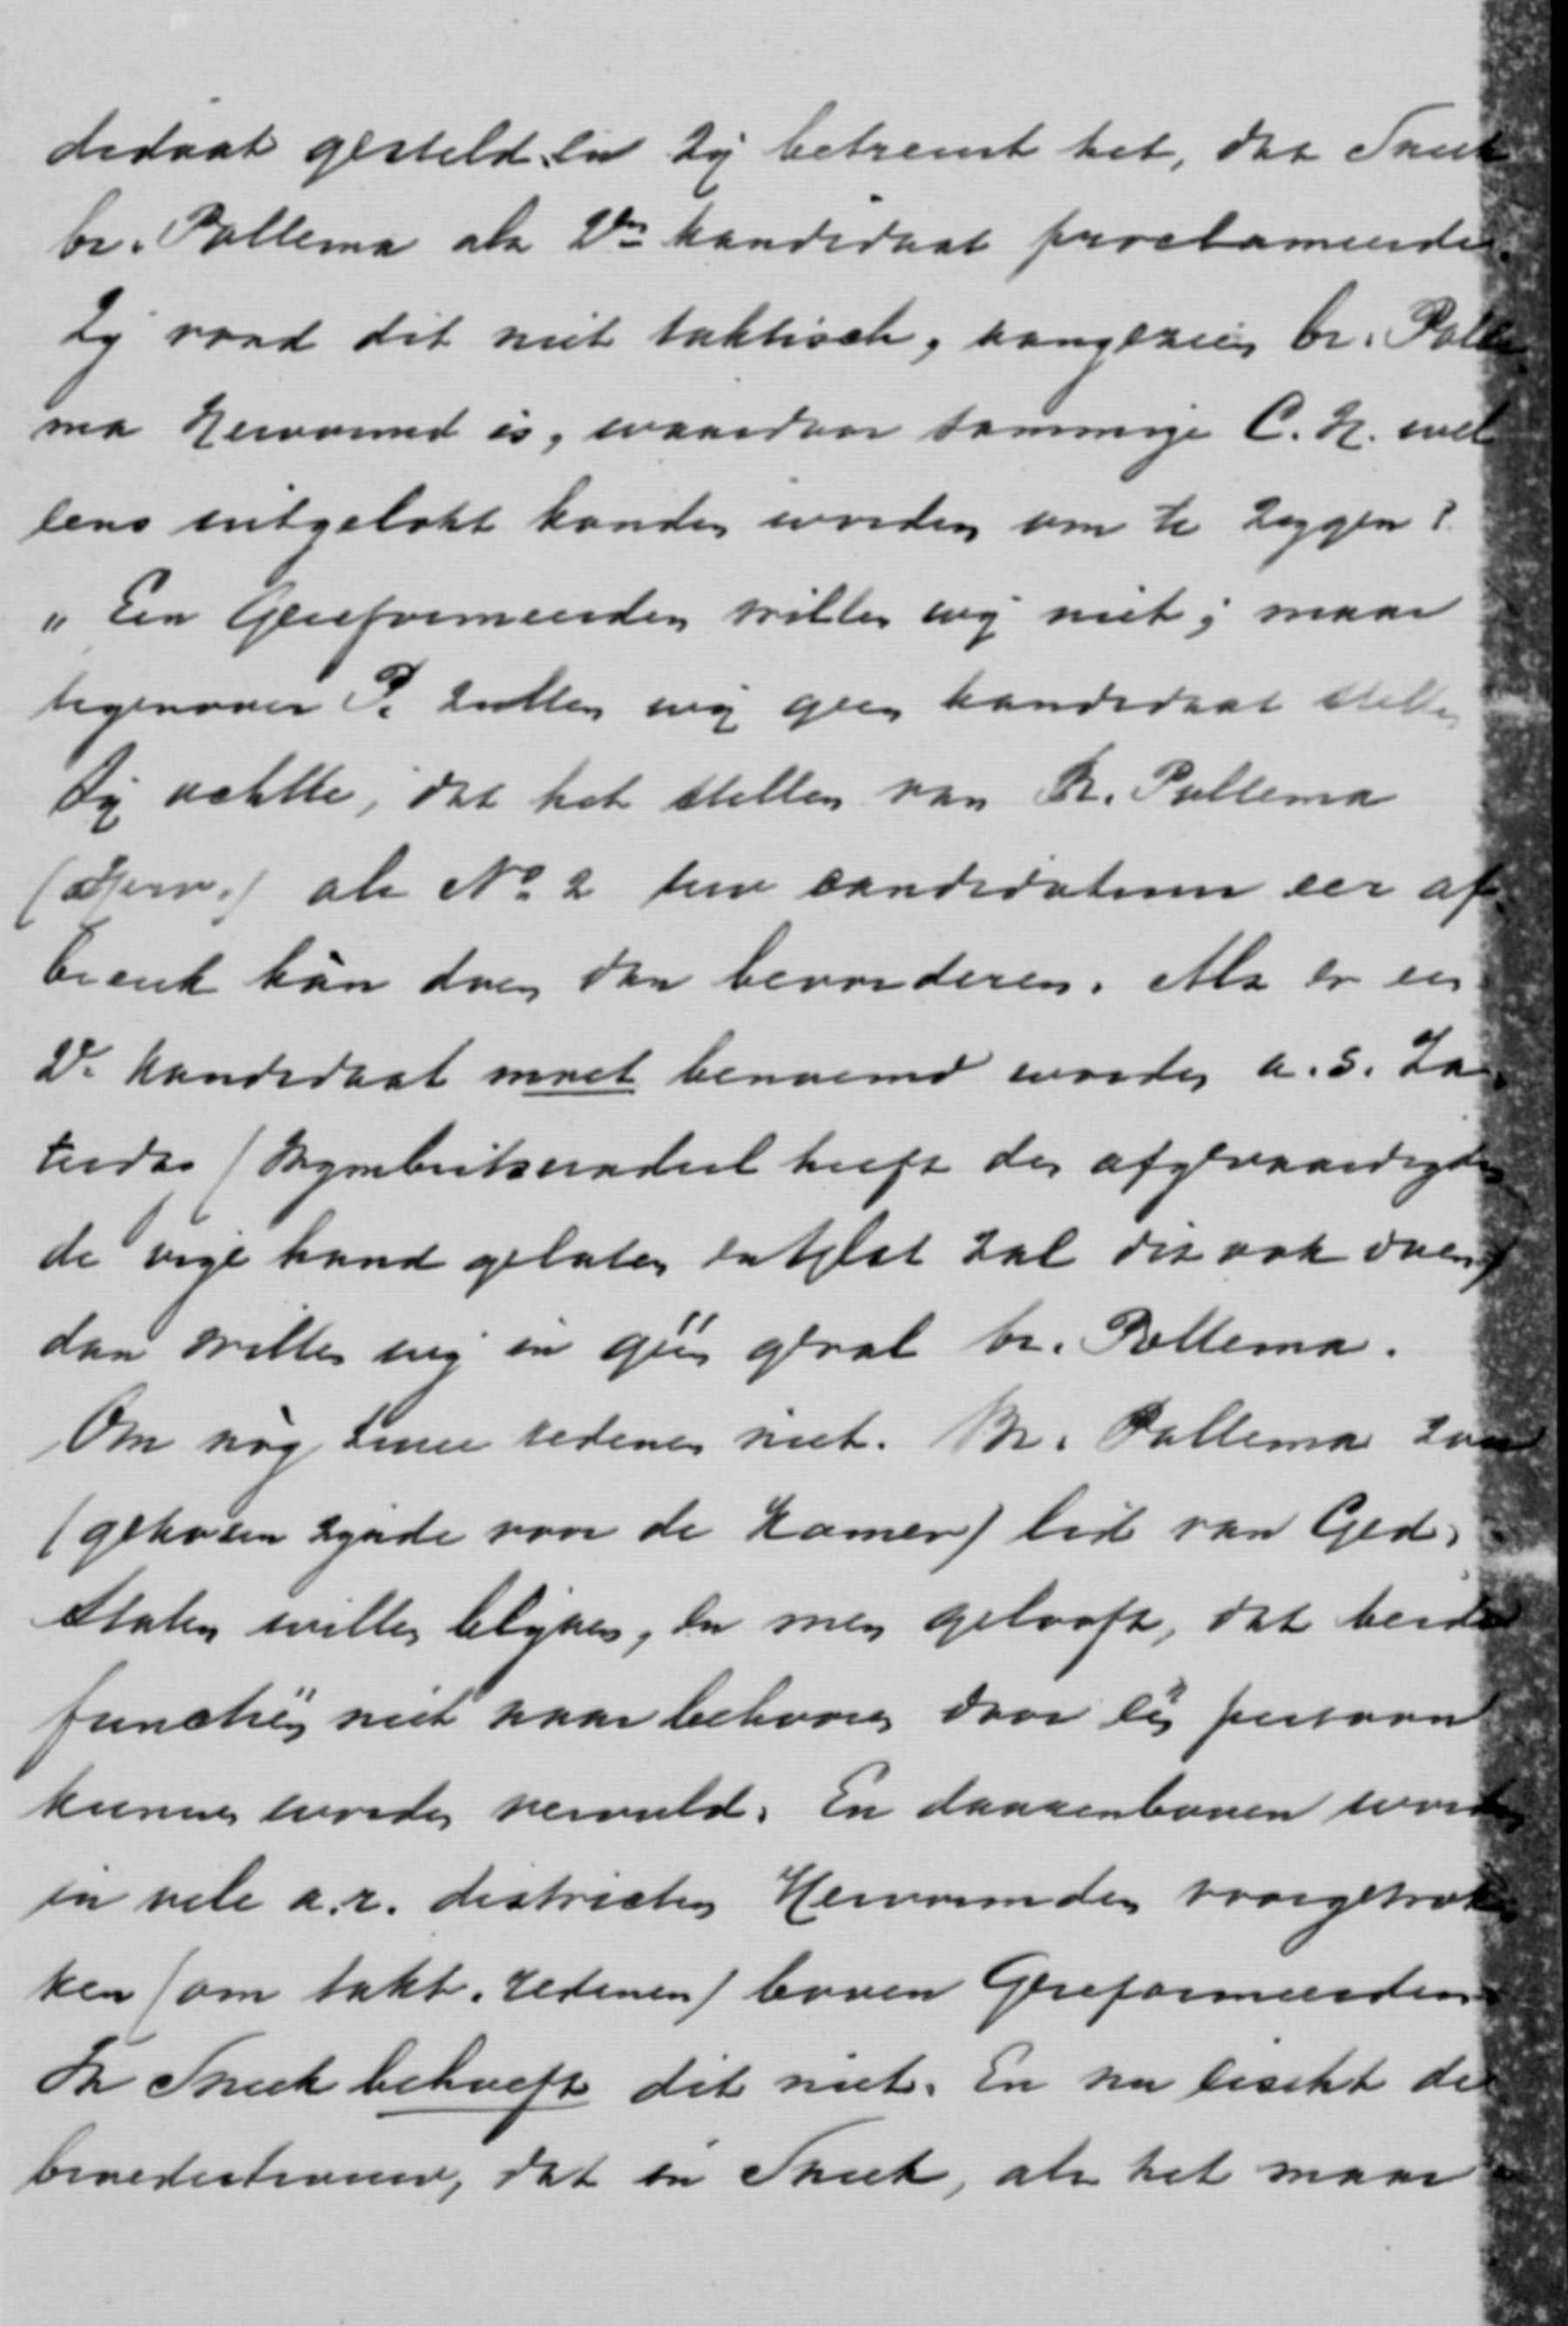 didaat gesteld. En Zij betreurt het, dat Sneek
br. Pollema als 2den kandidaat proclameerde.
Zij vond dit niet taktisch, aangezien br. Polle-
ma Hervormd is, waardoor sommige C.H. wel
eens uitgelokt konden worden om te zeggen:
„Een Gereformeerden willen wij niet; maar
tegenover P. zullen wij geen kandidaat stellen
Zij achtte, dat het stellen van Br. Pollema
(Herv.) als No 2 uw candidatuur eer af-
breuk kàn doen dan bevorderen. Als er een
2e kandidaat moet benoemd worden a.s. Za-
terdag (Wymbritseradeel heeft den afgevaardigden
de vrije hand gelaten en zal dit ook doen)
dan willen wij in géén geval br. Pollema.
Om nòg twee redenen niet. Br. Pollema zou
(gekozen zynde voor de Kamer) lid van Ged.
Staten willen blijven, en men gelooft, dat beide
functiën niet naar behooren door één persoon
kunnen worden vervuld. En daarenboven worden
in vele a.r. districten Hervormden voorgetrok-
ken (om takt. redenen) boven Gereformeerden
In Sneek behoeft dit niet. En nu eischt de
broedertrouw, dat in Sneek, als het maar